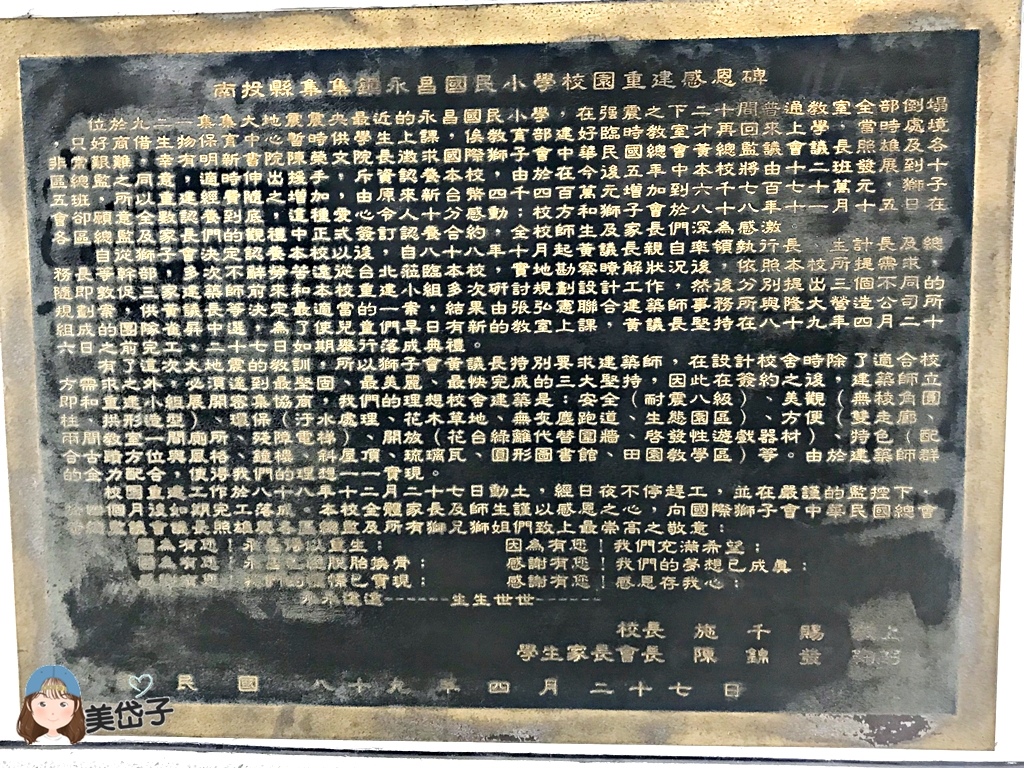 南投縣集集鎮永昌國民小學校園重建感恩碑
位於九二一集集大地震震央最近的永昌國民小學，在强震之下二十間普通教室全部倒塌
，只好商借生物保育中心暫時供學生上課，俟教育部建好臨時教室才再回來上學，當時處境
非常艱難，幸有明新書院陳榮文院長邀求國際獅子會中華民國總會黃總監議會議長照雄及各
區總監之同意，適時伸出援手，斥資認養本校，由於今後五年本校將由十二班發展到二十
五班，所以重建經費隨之增加，由原來新台幣四千四百萬增加到六千七百七十萬元，獅子
會卻願意全數認養到底，這種愛心令人十分感動；校方和獅子會於八十八年十一月十五日在
各區總監及家長們的觀禮中正式簽訂合約，全校師生及家長們深為感激。
自從獅子會決定認養本校以後，自八十八年十月起黃議長親自率領執行長、主計長及總
務長等幹部，多次不辭勞苦遠從台北蒞臨本校，實地勘察瞭解狀況後，依照本校所提需求，
隨即敦促三家建築師前來和本校重建小組多次研討規劃設計工作，然後分別提出三個不同的
規劃案，供黃議長等決定最適當的一案，結果由張弘憲聯合建築師事務所與隆大營造公司所
組成的團隊雀屏中選，為了使兒童們早日有新的教室上課，黃議長堅持在八十九年四月二十
六日之前完工，二十七日如期舉行落成典禮。
有了這次大地震的教訓，所以獅子會黃議長特別要求建築師，在設計校舍時除了適合校
方需求之外，必須達到最堅固、最美麗、最快完成的三大堅持，因此在簽約之後，建築師立
即和重建小組展開密集協商，我們的理想校舍建築是：安全（耐震八級）、美觀（無稜角圓
柱、拱形造型）、環保（汙水處理、花木草地、無灰塵跑道、生態園區）、方便（雙走廊、
兩間教室一間廁所、殘障電梯）、開放（花台綠籬代替圍牆、啓發性遊戲器材）、特色（配
合古蹟方位與風格、鐘樓、斜屋頂、琉璃瓦、圓形圖書館、田園教學區）等。由於建築師群
的全力配合，使得我們的理想一一實現。
校園重建工作於八十八年十二月二十七日動土，經日夜不停趕工，並在嚴謹的監控下，
四個月後如期完工落成。本校全體家長及師生謹以感恩之心，向國際獅子會中華民國總會
總監議會議長照雄與各區總監及所有獅兄獅姐們致上最崇高之敬意：
因為有您！永昌得以重生； 因為有您！我們充滿希望；
因為有您！永昌已經脫胎換骨； 感謝有您！我們的夢想已成真；
感謝有您！我們的憧憬已實現； 感謝有您！感恩存我心；
永永遠遠------生生世世------
校長 施千賜 上
學生家長會長 陳錦
民國 八十九年四月二十七日
美岱子